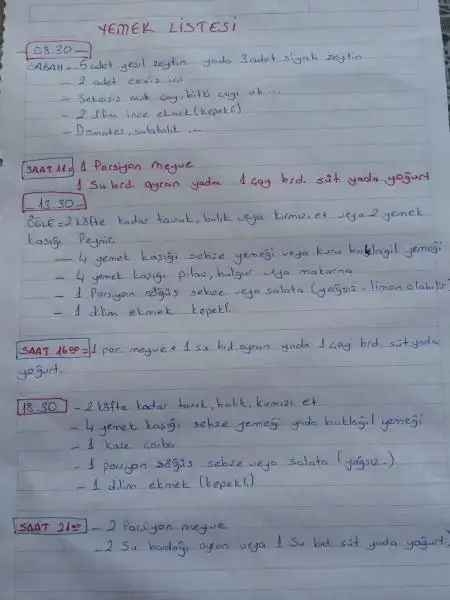 YEMEK LİSTESİ
08.30
SABAH = 5 adet yeşil zeytin yada 3 adet siyah zeytin
- 2 adet ceviz içi
- Şekersiz açık çay, bitki çayı vb...
- 2 dilim ince ekmek (kepekli)
- Domates, salatalık ...
SAAT 11= 1 Porsiyon meyve
1 Su brd. ayran yada 1 çay brd. süt yada yoğurt
13.30
ÖĞLE = 2 köfte kadar tavuk, balık veya kırmızı et veya 2 yemek
kaşığı Peynir.
- 4 yemek kaşığı sebze yemeği veya kuru baklagil yemeği
- 4 yemek kaşığı pilav, bulgur veya makarna
- 1 Porsiyon söğüş sebze veya salata (yağsız, limon olabilir)
- 1 dilim ekmek kepekli.
SAAT 16:00 = 1 por. meyve + 1 su brd. ayran yada 1 çay brd. süt yada
yoğurt.
18.30 - 2 köfte kadar tavuk, balık, kırmızı et
- 4 yemek kaşığı sebze yemeği yada baklagil yemeği
- 1 kase çorba
- 1 porsiyon söğüş sebze veya salata (yağsız.)
- 1 dilim ekmek (kepekli)
SAAT 21:00 - 2 Porsiyon meyve
- 2 Su bardağı ayran veya 1 Su brd. süt yada yoğurt.